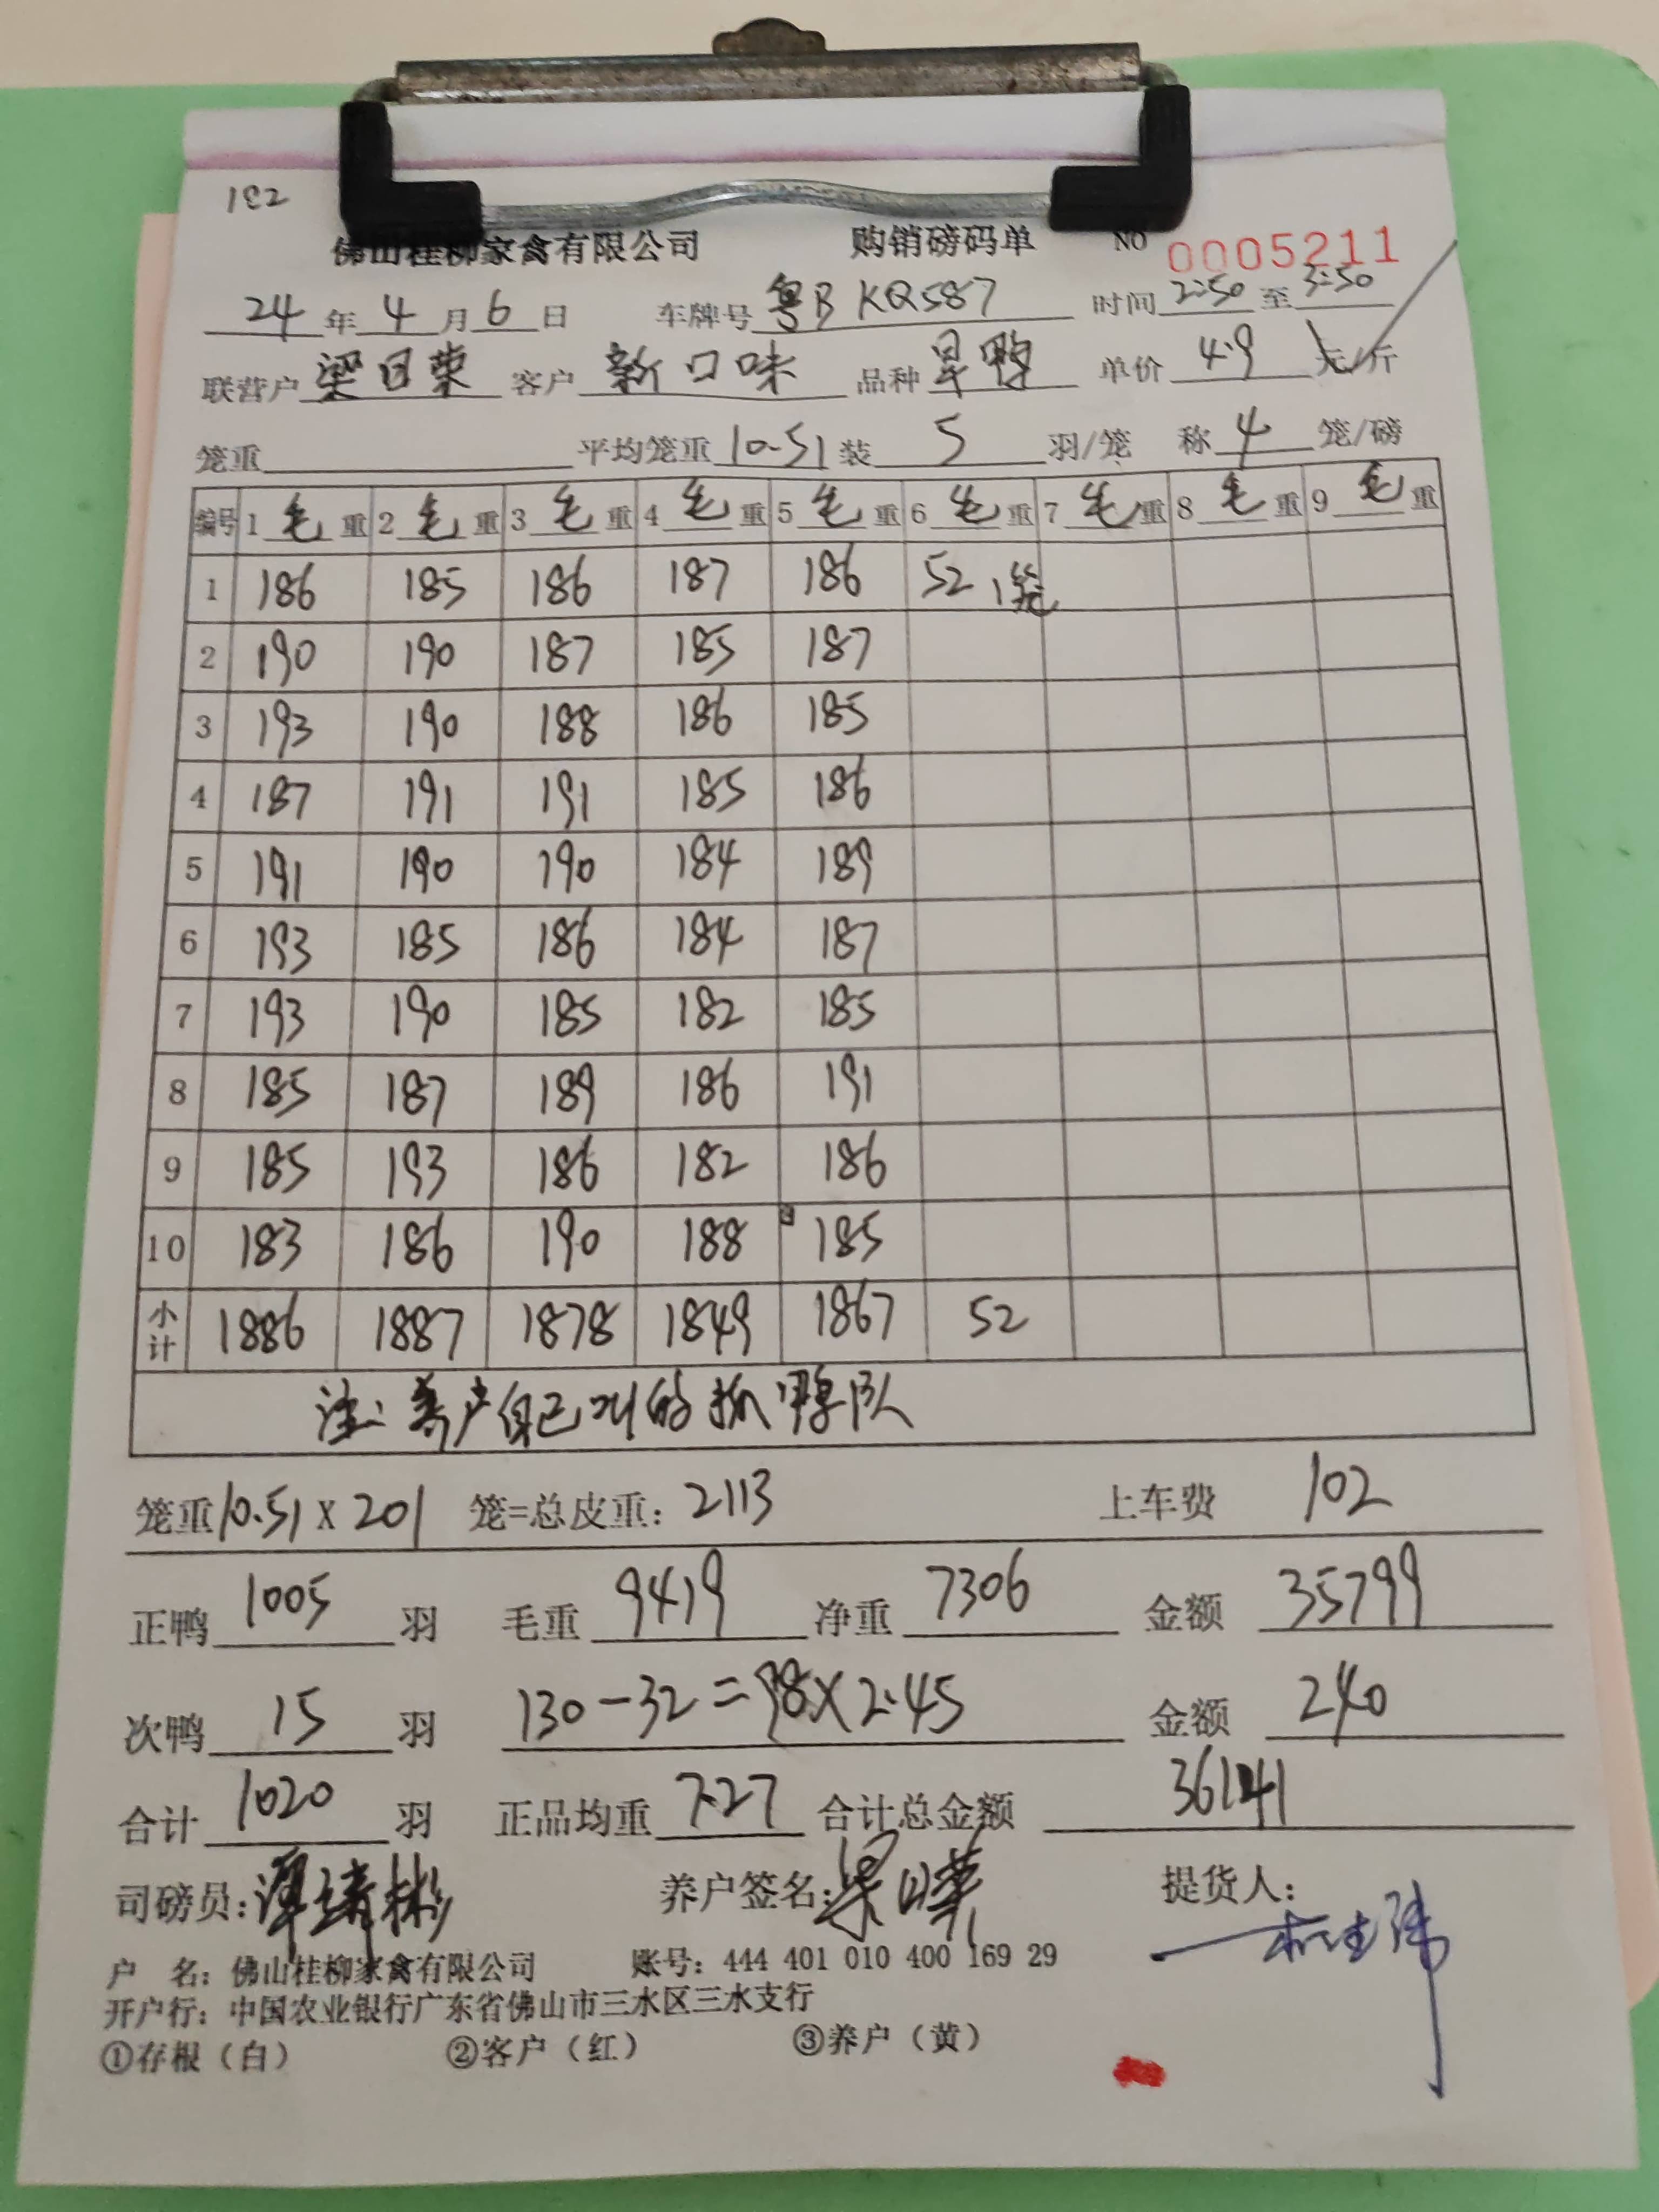 182
佛山桂柳家禽有限公司 购销磅码单 NO 0005211
24年4月6日 车牌号 粤B KQ587 时间 2:50 至 3:50
联营户 梁日荣 客户 新口味 品种 旱鸭 单价 4.9 元/斤
笼重 平均笼重 10.51 装 5 羽/笼 称 4 笼/磅
编号 1 毛 重 2 毛 重 3 毛 重 4 毛 重 5 毛 重 6 毛 重 7 毛 重 8 毛 重 9 毛 重
1 186 185 186 187 186 52 1笼
2 190 190 187 185 187
3 193 190 188 186 185
4 187 191 191 185 186
5 191 190 190 184 189
6 193 185 186 184 187
7 193 190 185 182 185
8 185 187 189 186 191
9 185 193 186 182 186
10 183 186 190 188 185
小计 1886 1887 1878 1849 1867 52
注: 养户自己叫的抓鸭队
笼重 10.51 x 201 笼=总皮重: 2113 上车费 102
正鸭 1005 羽 毛重 9419 净重 7306 金额 35799
次鸭 15 羽 130-32=98x2.45 金额 240
合计 1020 羽 正品均重 7.27 合计总金额 36141
司磅员: 养户签名: 梁日荣 提货人:
户 名: 佛山桂柳家禽有限公司 账号: 444 401 010 400 169 29
开户行: 中国农业银行广东省佛山市三水区三水支行
①存根(白) ②客户(红) ③养户(黄)